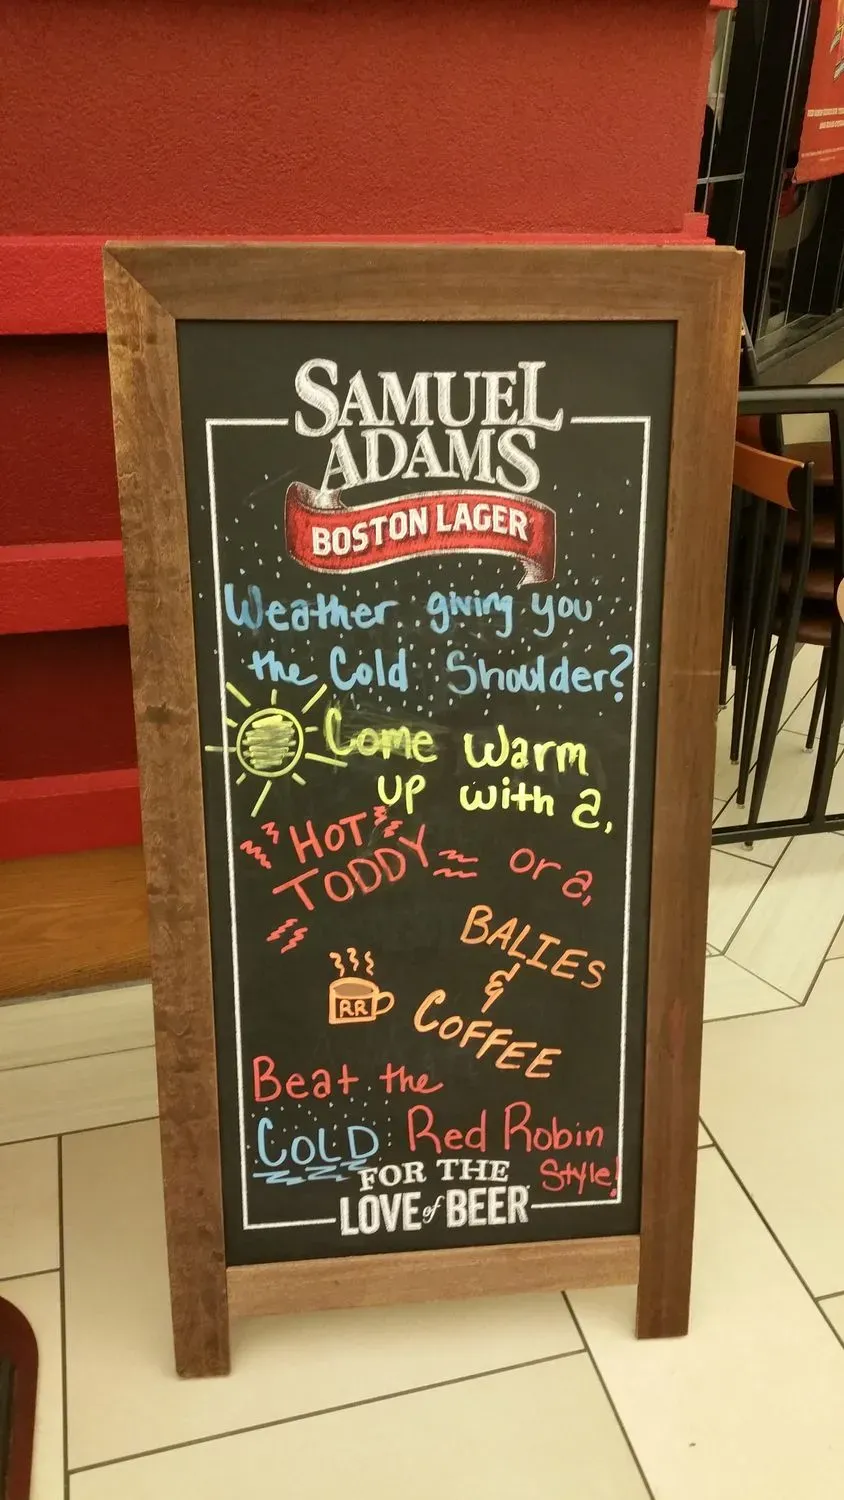 SAMUEL
ADAMS
BOSTON LAGER
Weather giving you
the Cold Shoulder?
Come warm
up with a,
HOT
TODDY or a,
BALIES
&
COFFEE
RR
Beat the
COLD Red Robin
Style!
FOR THE
LOVE of BEER